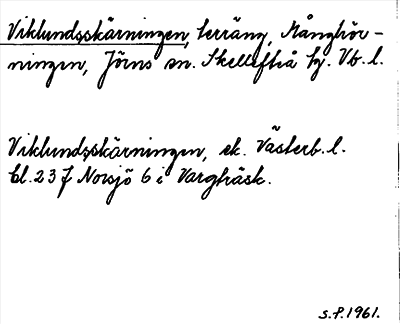 Viklundsskärningen, terräng, Månghör-
ningen, Jörns sn. Skellefteå hg. Vb. l.
Viklundsskärningen, ek. Västerb. l.
bl. 23 f Norsjö 6 i Vargträsk.
S.P. 1961.